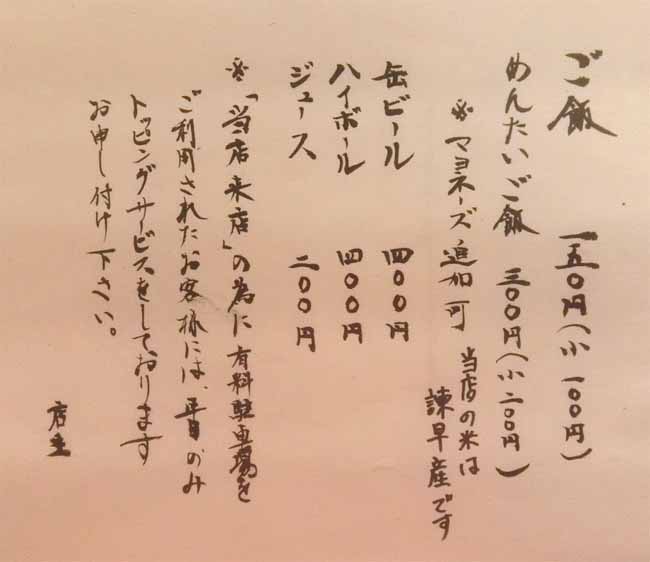 ご飯 一五〇円(小 一〇〇円)
めんたいご飯 三〇〇円(小 二〇〇円)
※マヨネーズ追加可
当店の米は
諫早産です
缶ビール 四〇〇円
ハイボール 四〇〇円
ジュース 二〇〇円
※「当店来店」の為に有料駐車場を
ご利用されたお客様には、平日のみ
トッピングサービスをしております
お申し付け下さい。
店主